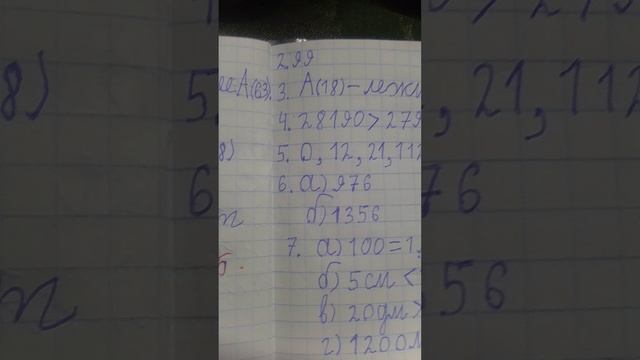 299
3. А(18) – лежи
4. 28190 > 279
5. 0, 12, 21, 112
6. а) 976
б) 1356
7. а) 100 = 1
б) 5 см <
в) 20 дм >
г) 1200